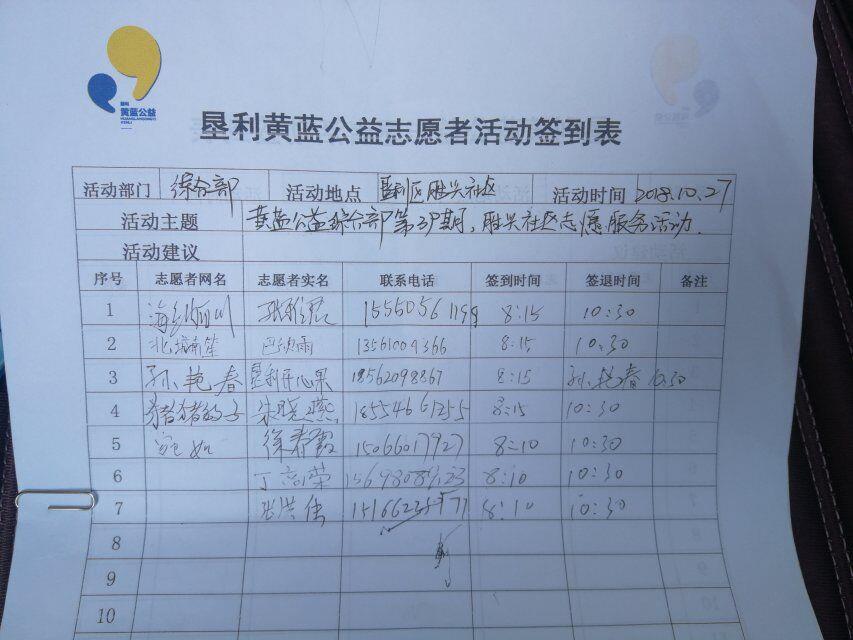 垦利
黄蓝公益
HUANGLANGONGYI
KENLI
垦利黄蓝公益志愿者活动签到表
活动部门 综合部 活动地点 垦利区胜兴社区 活动时间 2018.10.27
活动主题 黄蓝公益综合部第 期，胜兴社区志愿服务活动.
活动建议
序号 志愿者网名 志愿者实名 联系电话 签到时间 签退时间 备注
1 海纳百川 张雅君 15550561199 8:15 10:30
2 北雄南笨 13561009366 8:15 10:30
3 孙艳春 垦利开心果 18562098867 8:15 孙艳春 10:30
4 猪猪的子 朱晓燕 18554661255 8:15 10:30
5 宛如 徐春霞 15066017927 8:10 10:30
6 丁高荣 15698089123 8:10 10:30
7 张洪伟 8:10 10:30
8
9
10